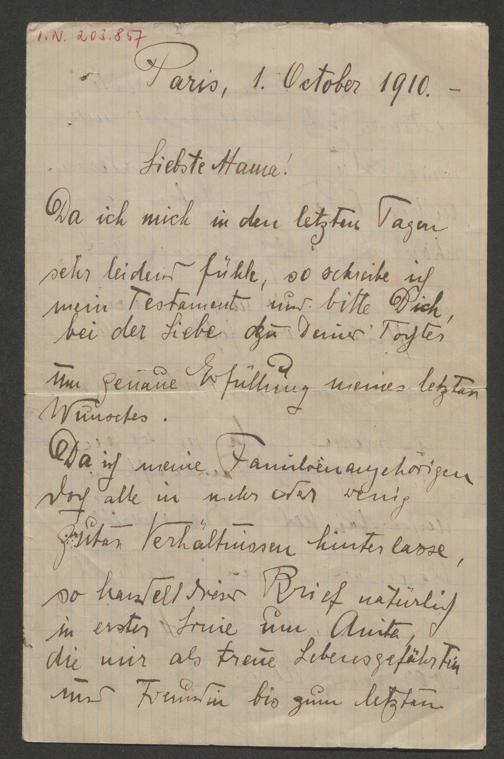 I.N. 203.857
Paris, 1. October 1910. –
Liebste Mama!
Da ich mich in den letzten Tagen
sehr leidend fühle, so schreibe ich
mein Testament und bitte Dich,
bei der Liebe zu Deiner Tochter
um genaue Erfüllung meines letzten
Wunsches.
Da ich meine Familienangehörigen
doch alle in mehr oder wenig
guten Verhältnissen hinterlasse,
so handelt dieser Brief natürlich
in erster Linie um Anita,
die mir als treue Lebensgefährtin
und Freundin bis zum letzten